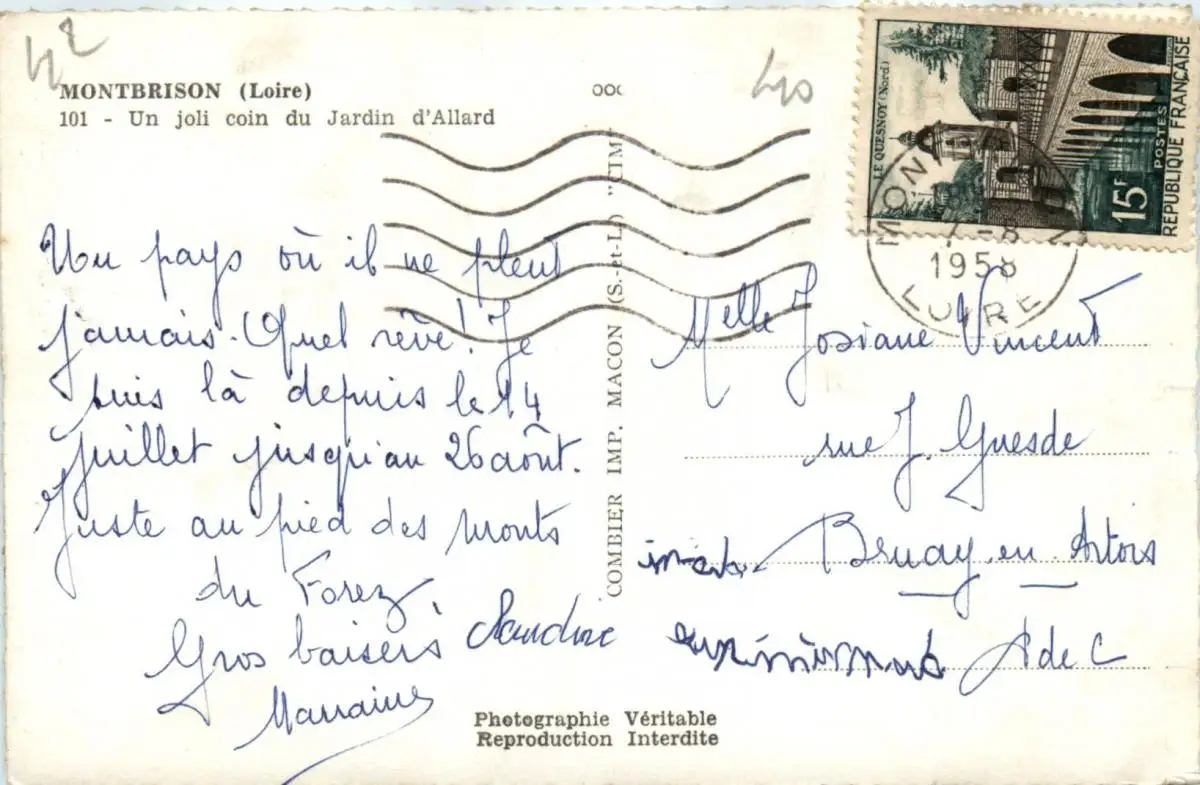 42
MONTBRISON (Loire)
101 - Un joli coin du Jardin d'Allard
40
LE QUESNOY (Nord)
15F
POSTES
REPUBLIQUE FRANÇAISE
MONTBRISON
7 - 8
1958
LOIRE
Un pays où il ne pleut
jamais. Quel rêve! Je
suis là depuis le 14
Juillet jusqu'au 26 août.
Juste au pied des monts
du Forez
Gros baisers
Marraine
Claudine
COMBIER IMP. MACON (S.-et-L.) "CIM"
Melle Josiane Vincent
rue J. Guesde
Bruay en Artois
P de C
Photographie Véritable
Reproduction Interdite